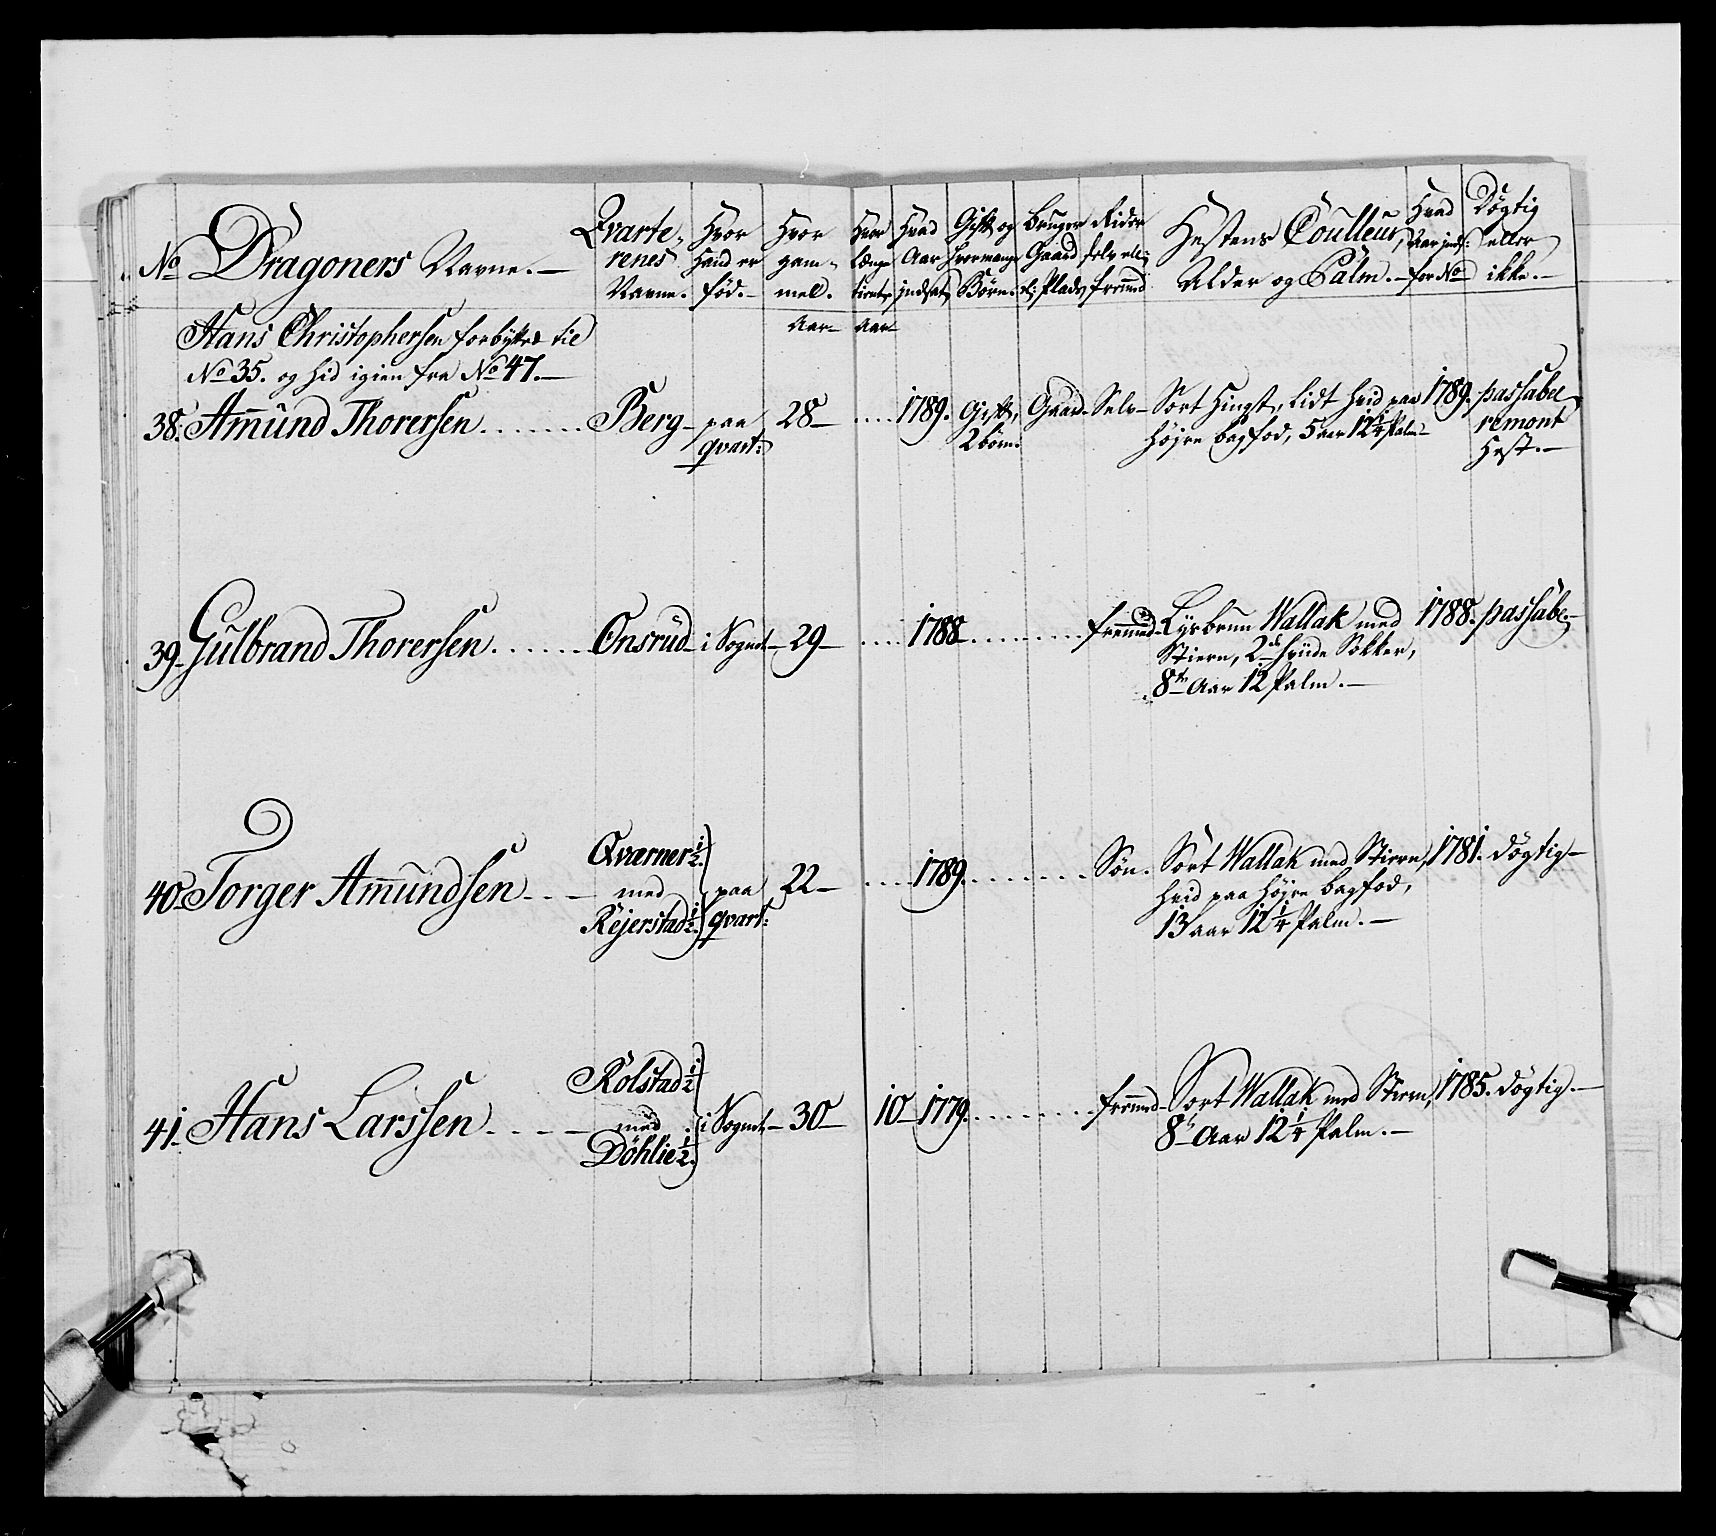 No Dragoners Navne.— Qvarte- renes Navne. Hvor Hand er fød.— Hvor gam- mel. Hvor Længe tient Hvad Aar indsat Gift og hvormange Børn. Bruger Gaard el: Plads Rider selv ell: fremmed Hestens Coulleur, Alder og Palm.— Hvad Aar inds: for No Døgtig eller ikke.—
Aar— Aar
Hans Christophersen forbyttet til
No 35. og hid igien fra No 47.—
38. Amund Thorersen....... Berg— paa qvart: 28— .... 1789. Gift, 2 børn. Gaard— Selv— Sort Hingst, lidt hvid paa højre bagfod, 5 aar 12¼ Palm— 1789. passabel remont Hest.—
39— Gulbrand Thorersen....... Onsrud— i Sognet— 29— .... 1788......... fremmed— Lysbrun Wallak med Stiern, 2de hviide Sokker, 8te Aar 12 Palm.— 1788. passabel—
40— Torger Amundsen... Qværner ½ med Rejerstad ½. paa qvart: 22— .... 1789......... Søn. Sort Wallak med Stiern, hvid paa højre bagfod, 13 aar 12¼ Palm.— 1781. døgtig—
41— Hans Larssen..... Kolstad ½ med Döhlie ½. i Sognet— 30— 10— 1779......... fremmed— Sort Wallak med Stiern, 8te Aar 12¼ Palm.— 1785. døgtig.—